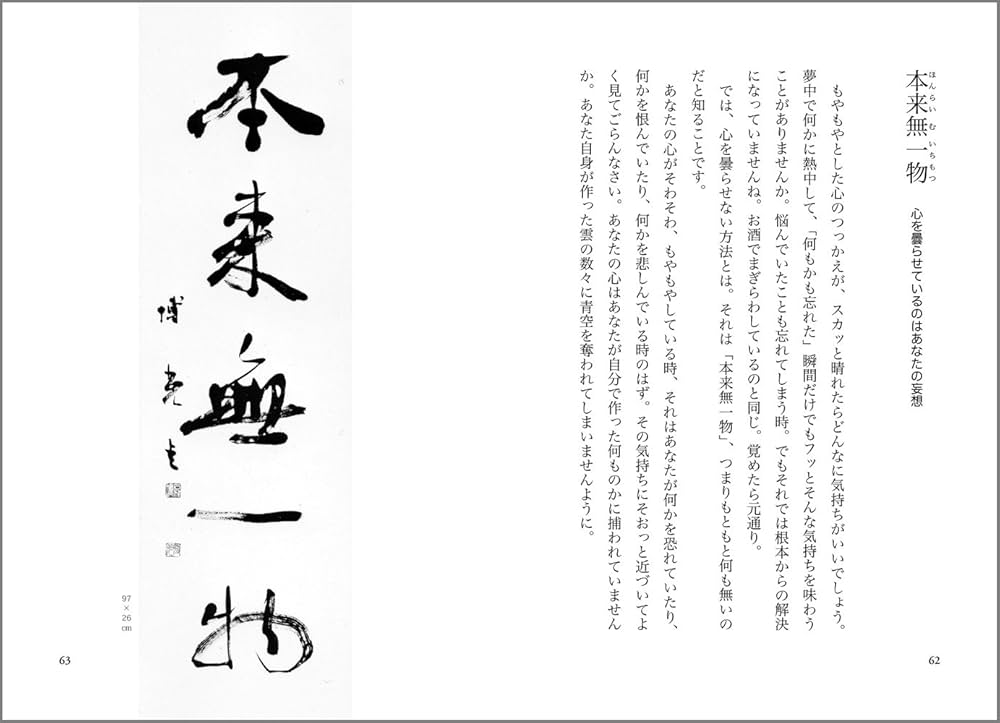 本来無一物
ほんらいむいちもつ
心を曇らせているのはあなたの妄想
もやもやとした心のつっかえが、スカッと晴れたらどんなに気持ちがいいでしょう。
夢中で何かに熱中して、「何もかも忘れた」瞬間だけでもフッとそんな気持ちを味わう
ことがありませんか。悩んでいたことも忘れてしまう時。でもそれでは根本からの解決
になっていませんね。お酒でまぎらわしているのと同じ。覚めたら元通り。
では、心を曇らせない方法とは。それは「本来無一物」、つまりもともと何も無いの
だと知ることです。
あなたの心がそわそわ、もやもやしている時、それはあなたが何かを恐れていたり、
何かを恨んでいたり、何かを悲しんでいる時のはず。その気持ちにそおっと近づいてよ
く見てごらんなさい。あなたの心はあなたが自分で作った何ものかに捕われていません
か。あなた自身が作った雲の数々に青空を奪われてしまいませんように。
62
本来無一物
博堯
97×26cm
63